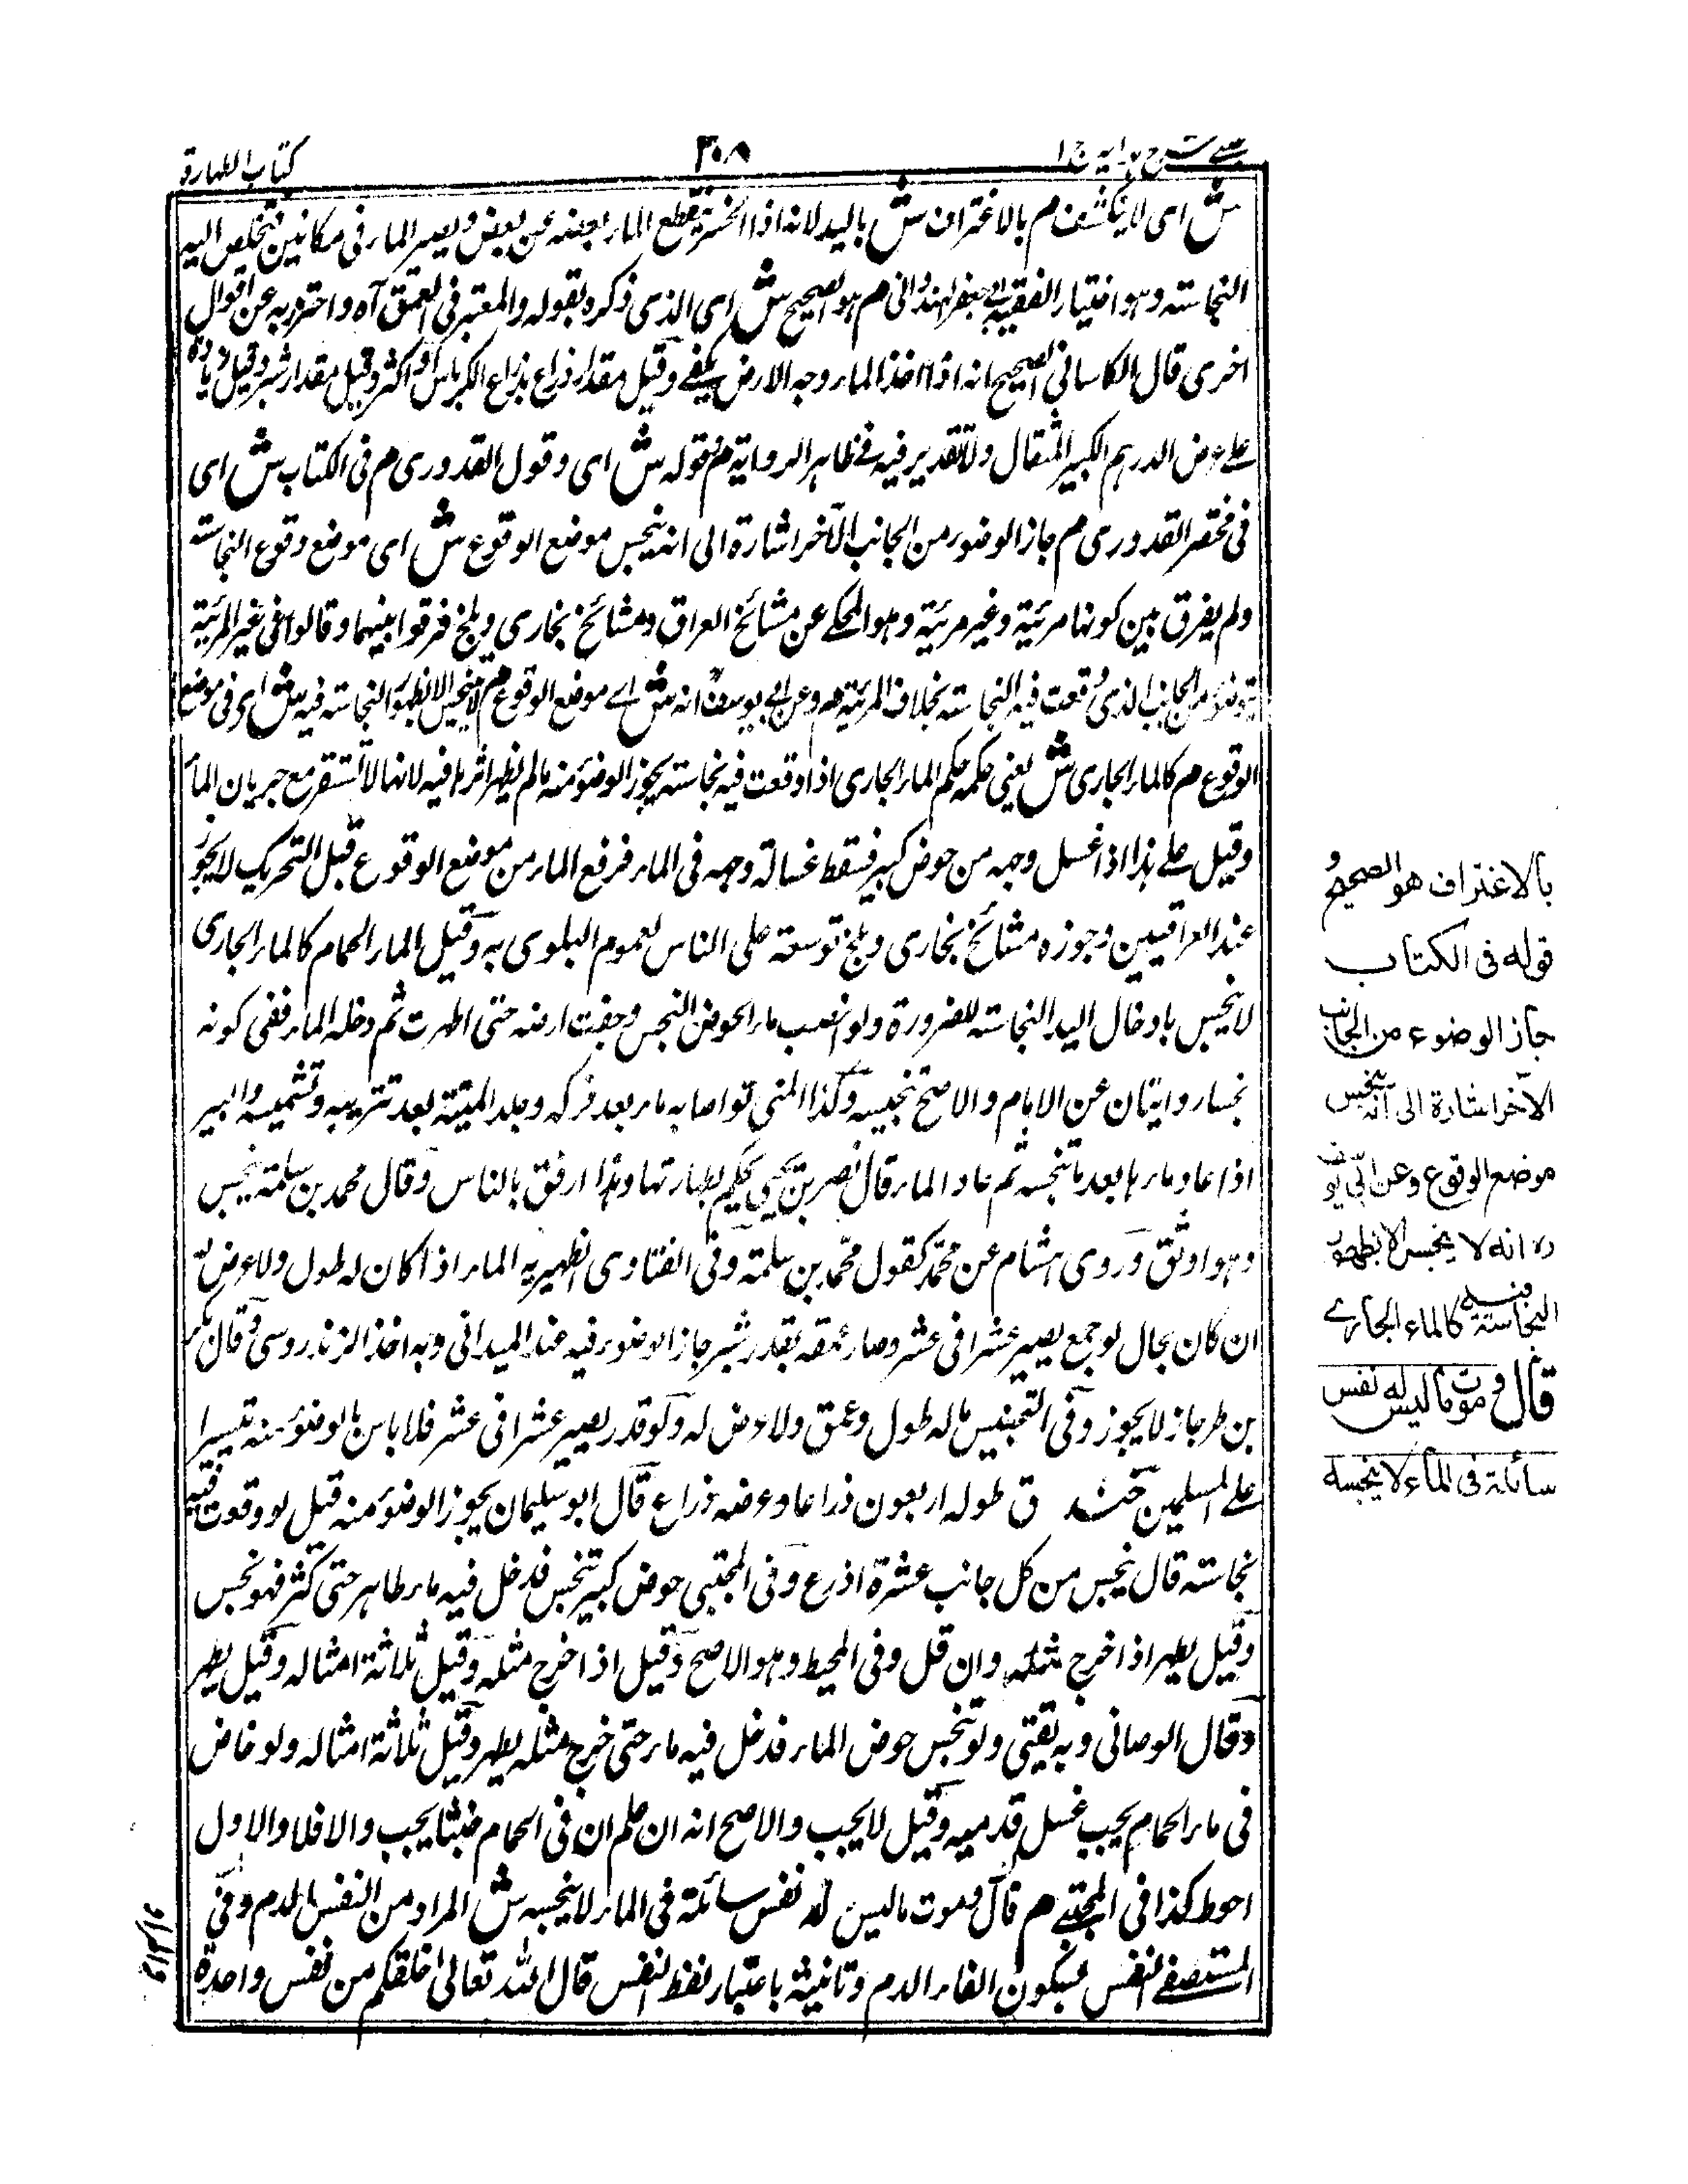 عینی شرح ہدایہ ج ا
۳۰۸
کتاب الطہارۃ
ش ای لا ینکشف م بالاغتراف ش بالید لانہ اذا انحسر ینقطع الماء بعضہ عن بعض ویصیر الماء فی مکانین فتخلص الیہ
النجاستہ وہو اختیار الفقیہ ابی جعفر الہندوانی م ہو الصحیح ش ای الذی ذکرہ بقولہ والمعتبر فی العمق آہ واحترز بہ عن اقوال
اخری قال الکاسانی الصحیح انہ اذا اخذ الماء وجہ الارض یکفے وقیل مقدار ذراع بذراع الکرباس او اکثر وقیل مقدار شبر وقیل زیادۃ
علے عرض الدرہم الکبیر المثقال ولا تقدیر فیہ فے ظاہر الروایۃ م وقولہ ش ای وقول القدوری م فی الکتاب ش ای
فی مختصر القدوری م جاز الوضوء من الجانب الآخر اشارۃ الی انہ ینجس موضع الوقوع ش ای موضع وقوع النجاستہ
ولم یفرق بین کونہا مرئیۃ وغیر مرئیۃ وہو المحکے عن مشائخ العراق ومشائخ بخاری وبلخ فرقوا بینہما وقالوا فی غیر المرئیۃ
یتوضؤ من الجانب الذی وقعت فیہ النجاستہ بخلاف المرئیۃ م وعن ابی یوسف انہ ش اے موضع الوقوع م لا ینجس الا بظہور النجاستہ فیہ ش ای فی موضع
الوقوع م کالماء الجاری ش یعنی حکمہ حکم الماء الجاری اذا وقعت فیہ نجاستہ یجوز الوضوء منہ مالم یظہر اثرہا فیہ لانہا لا تستقر مع جریان الماء
وقیل علے ہذا اذا غسل وجہہ من حوض کبیر فسقط غسالۃ وجہہ فی الماء فرفع الماء من موضع الوقوع قبل التحریک لا یجوز
عند العراقیین وجوزہ مشائخ بخاری وبلخ توسعۃ علی الناس لعموم البلوی بہ وقیل الماء الحمام کالماء الجاری
لا ینجس بادخال الید النجاستہ للضرورۃ ولو نضب ماء الحوض النجس وجفت ارضہ حتی اطہرت ثم دخلہ الماء ففی کونہ
نجسا روایتان عن الامام والاصح نجیسہ وکذا المنی لو اصابہ ماء بعد فرکہ وجلد المیتۃ بعد تتریبہ وتشمیسہ والبیر
اذا عاد ماءہا بعد ما تنجسہ ثم عاد الماء قال نصر بن یحیی یحکم بطہارتہا وہذا ارفق بالناس وقال محمد بن سلمۃ ینجس
وہو اوثق وروی ہشام عن محمد کقول محمد بن سلمۃ وفی الفتاوی الظہیریہ الماء اذا کان لہ طول ولا عرض لہ
ان کان بحال لو جمع یصیر عشرا فی عشر وصار عمقہ بقدر شبر جاز الوضوء فیہ عند المیدانی وبہ اخذ الزندروسی وقال بکر
بن طرجاز لا یجوز وفی التجنیس مالہ طول وعمق ولا عرض لہ ولو قدر یصیر عشرا فی عشر فلا باس بالوضوء منہ تیسیرا
علے المسلمین خندق طولہ اربعون ذراعا وعرضہ ذراع قال ابو سلیمان یجوز الوضوء منہ قیل لو وقعت فیہ
نجاستہ قال ینجس من کل جانب عشرۃ اذرع وفی المجتبی حوض کبیر تنجس فدخل فیہ ماء طاہر حتی کثر فہو نجس
وقیل یطہر اذا خرج مثلہ وان قل وفی المحیط وہو الاصح وقیل اذا خرج مثلہ وقیل ثلاثۃ امثالہ وقیل یطہر
وقال الوصانی وبہ یفتی ولو تنجس حوض الماء فدخل فیہ ماء حتی خرج مثلہ یطہر وقیل ثلاثۃ امثالہ ولو خاض
فی ماء الحمام یجب غسل قدمیہ وقیل لا یجب والاصح انہ ان علم ان فی الحمام خبثا یجب والا فلا والاول
احوط کذا فی المجتبے م قال وموت ما لیس لہ نفس سائلۃ فی الماء لا ینجسہ ش المراد من النفس الدم وفی
المستصفے النفس بسکون الفاء الدم وتانیثہ باعتبار لفظ النفس قال اللہ تعالی خلقکم من نفس واحدۃ
بالاغتراف هو الصحیح و
قوله فی الکتاب
جاز الوضوء من الجانب
الآخر اشارة الی انه ینجس
موضع الوقوع وعن ابی یوسف
رح انه لا ینجس الا بظهور
النجاسة فیه کالماء الجاری
قال وموت ما لیس له نفس
سائلة فی الماء لا ینجسه